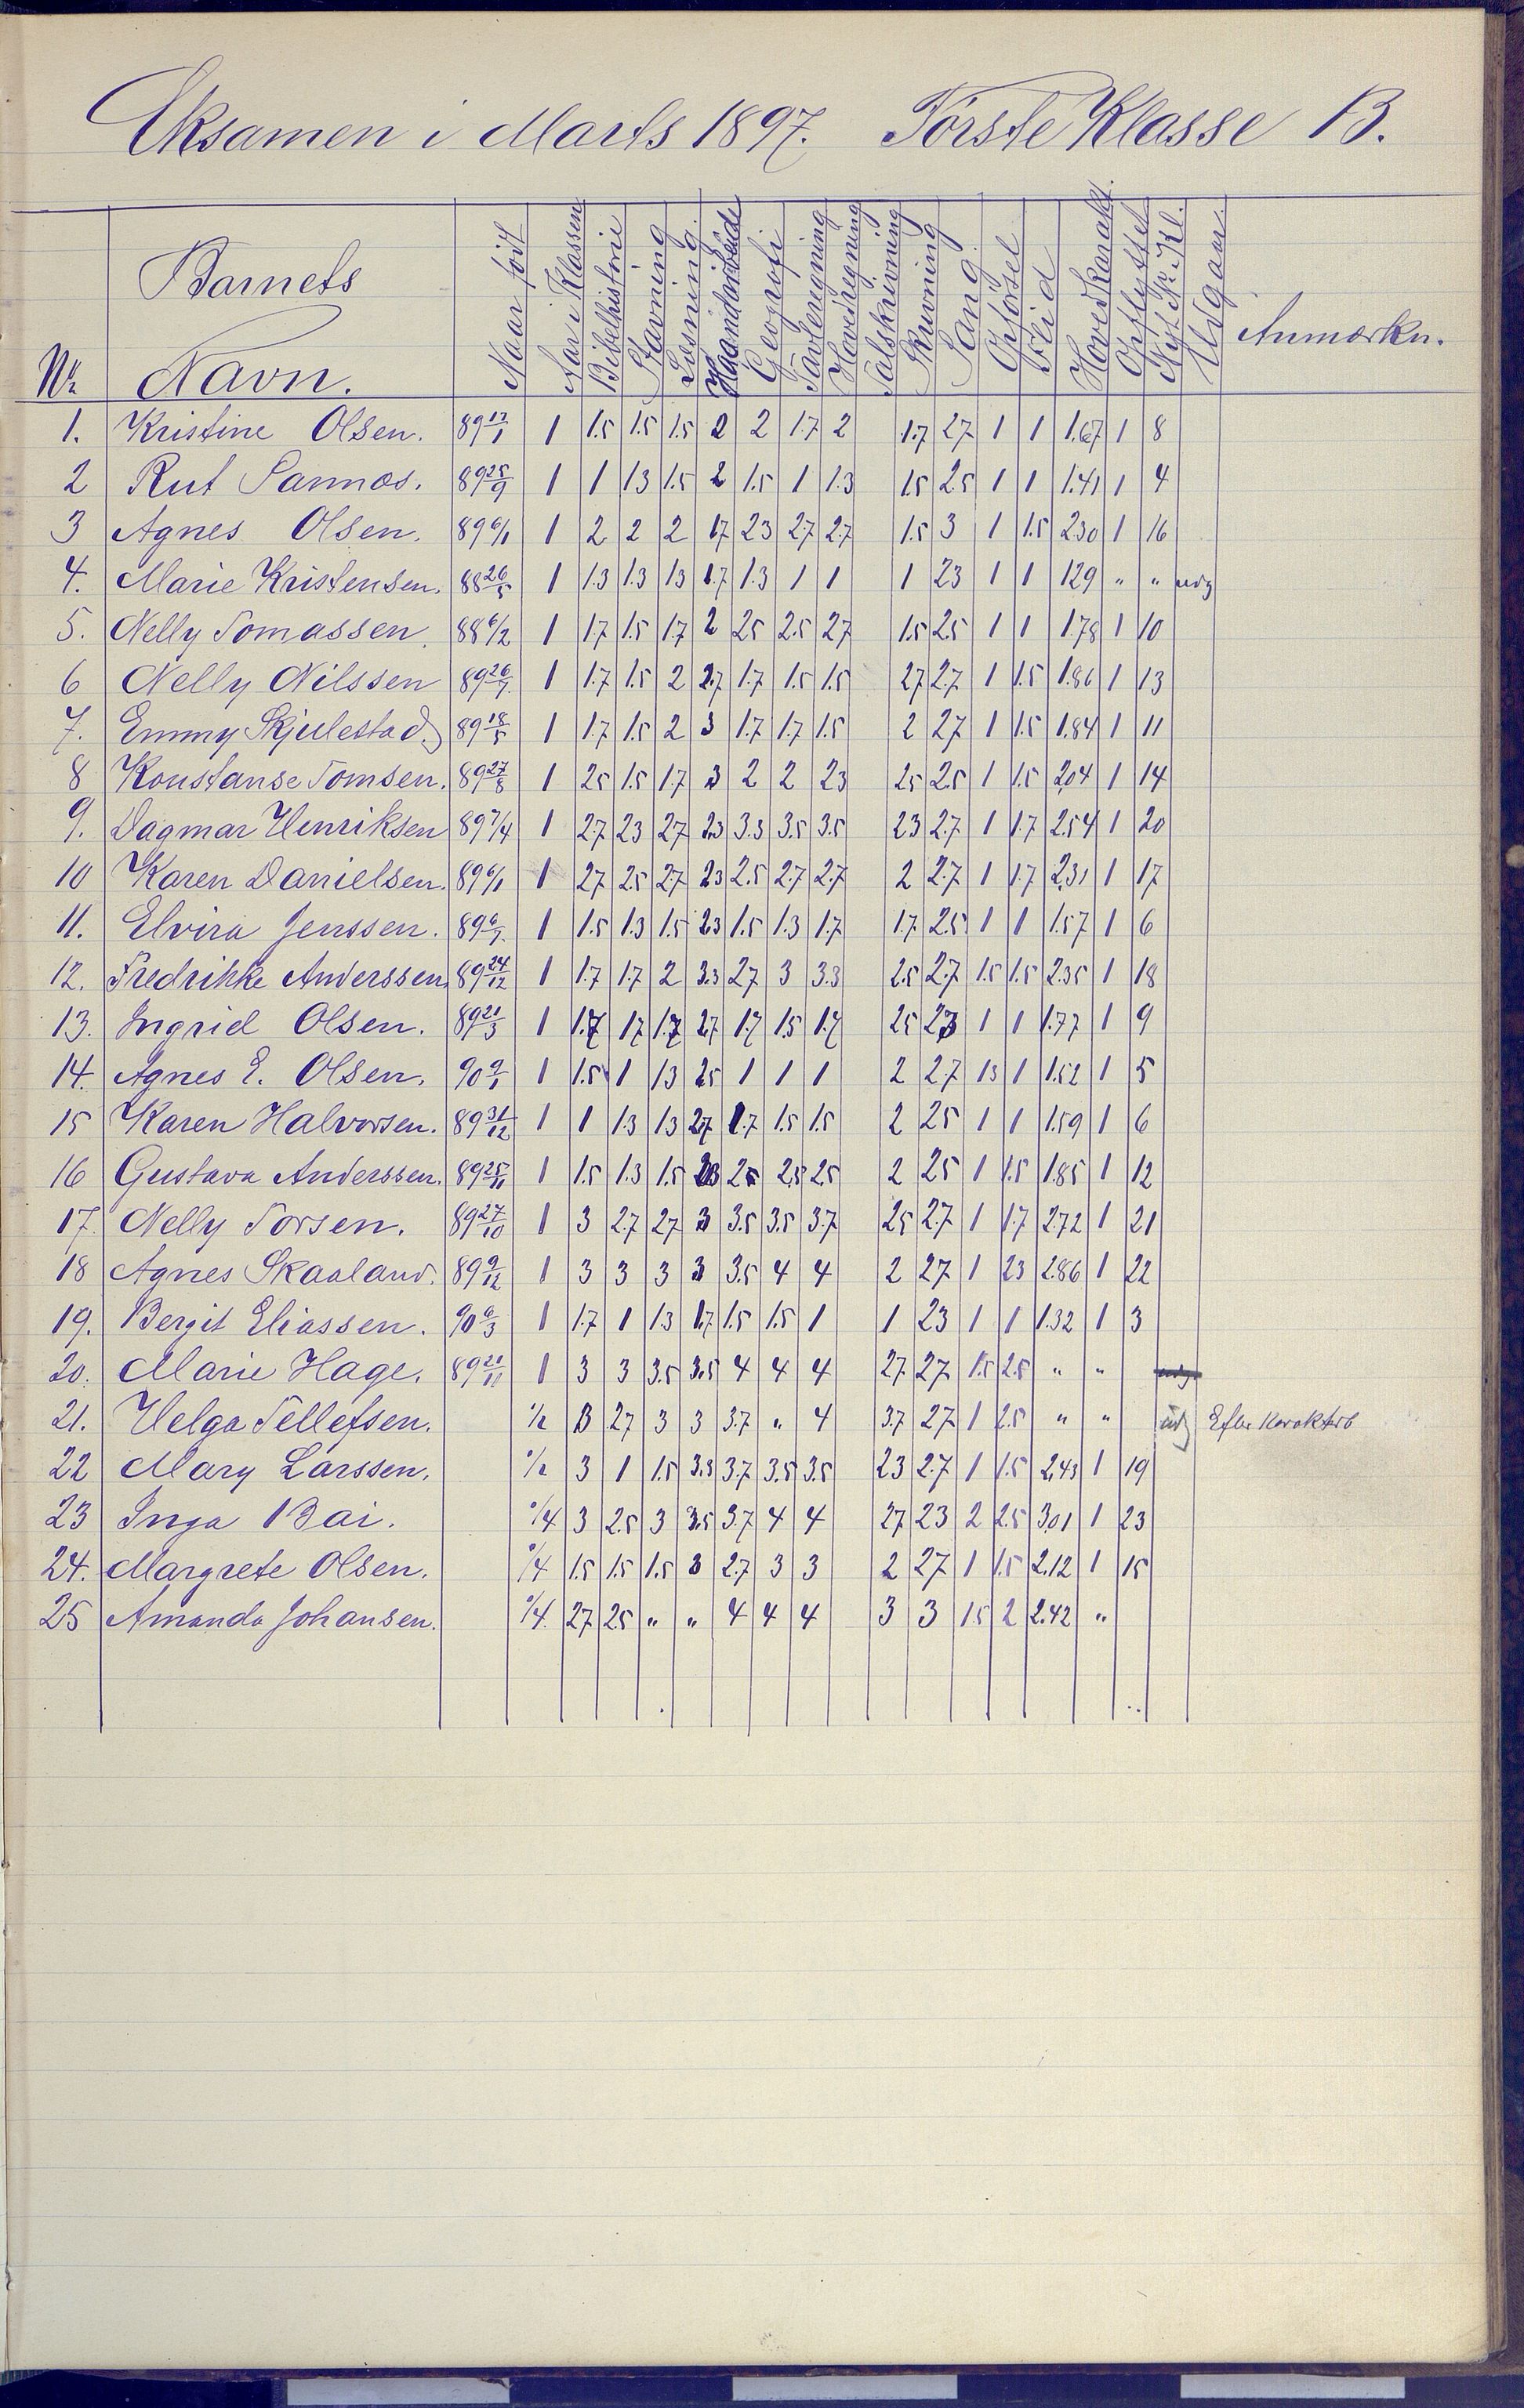 Eksamen i Marts 1897. Første Klasse B.
Nr. Barnets Navn. Naar født Aar i Klassen Bibelhistorie Stavning Læsning. Haandarbeide Geografi Tavleregning Hovedregning Talskrivning Skrivning Sang. Opførsel Flid Hovedkarakt. Opflyttet Nyt Nr. i Kl. Udgaar. Anmærkn.
1. Kristine Olsen. 89 17/1 1 1.5 1.5 1.5 2 2 1.7 2 1.7 2.7 1 1 1.67 1 8
2 Rut Sannæs. 89 25/9 1 1 1.3 1.5 2 1.5 1 1.3 1.5 2.5 1 1 1.41 1 4
3 Agnes Olsen. 89 6/1 1 2 2 2 1.7 2.3 2.7 2.7 1.5 3 1 1.5 2.30 1 16
4. Marie Kristensen. 88 26/5 1 1.3 1.3 1.3 1.7 1.3 1 1 1 2.3 1 1 1.29 " " udg
5. Nelly Tomassen. 88 6/2 1 1.7 1.5 1.7 2 2.5 2.5 2.7 1.5 2.5 1 1 1.78 1 10
6 Nelly Nilssen 89 26/7. 1 1.7 1.5 2 2.7 1.7 1.5 1.5 2.7 2.7 1 1.5 1.86 1 13
7. Emmy Skjulestad. 89 18/5 1 1.7 1.5 2 3 1.7 1.7 1.5 2 2.7 1 1.5 1.84 1 11
8 Konstanse Tomsen. 89 27/8 1 2.5 1.5 1.7 3 2 2 2.3 2.5 2.5 1 1.5 2.04 1 14
9. Dagmar Henriksen 89 7/4 1 2.7 2.3 2.7 2.3 3.3 3.5 3.5 2.3 2.7 1 1.7 2.54 1 20
10 Karen Danielsen. 89 6/1 1 2.7 2.5 2.7 2.3 2.5 2.7 2.7 2 2.7 1 1.7 2.31 1 17
11. Elvira Jenssen. 89 6/7. 1 1.5 1.3 1.5 2.3 1.5 1.3 1.7 1.7 2.5 1 1 1.57 1 6
12. Fredrikke Anderssen. 89 24/12 1 1.7 1.7 2 3.3 2.7 3 3.3 2.5 2.7 1.5 1.5 2.35 1 18
13. Ingrid Olsen. 89 21/3 1 1.7 1.7 1.7 2.7 1.7 1.5 1.7 2.5 2.3 1 1 1.77 1 9
14. Agnes E. Olsen. 90 9/1 1 1.5 1 1.3 2.5 1 1 1 2 2.7 1.3 1 1.52 1 5
15 Karen Halvorsen. 89 31/12 1 1 1.3 1.3 2.7 1.7 1.5 1.5 2 2.5 1 1 1.59 1 6
16 Gustava Anderssen. 89 25/11 1 1.5 1.3 1.5 2.3 2.5 2.5 2.5 2 2.5 1 1.5 1.85 1 12
17. Nelly Torsen. 89 27/10 1 3 2.7 2.7 3 3.5 3.5 3.7 2.5 2.7 1 1.7 2.72 1 21
18 Agnes Skaaland. 89 9/12 1 3 3 3 3 3.5 4 4 2 2.7 1 2.3 2.86 1 22
19. Bergit Eliassen. 90 6/3 1 1.7 1 1.3 1.7 1.5 1.5 1 1 2.3 1 1 1.32 1 3
20. Marie Hage. 89 21/11 1 3 3 3.5 3.5 4 4 4 2.7 2.7 1.5 2.5 " " udg.
21. Helga Tellefsen. 1/2 3 2.7 3 3 3.7 " 4 3.7 2.7 1 2.5 " " udg
22 Mary Larssen. 1/2 3 1 1.5 3.3 3.7 3.5 3.5 2.3 2.7 1 1.5 2.43 1 19
23 Inga Bai. 3 2.5 3 3.5 3.7 4 4 2.7 2.3 2 2.5 3.01 1 23
24. Margrete Olsen. 1.5 1.5 1.5 3 2.7 3 3 2 2.7 1 1.5 2.12 1 15
25 Amanda Johansen. 2.7 2.5 " " 4 4 4 3 3 1.5 2 2.42 "